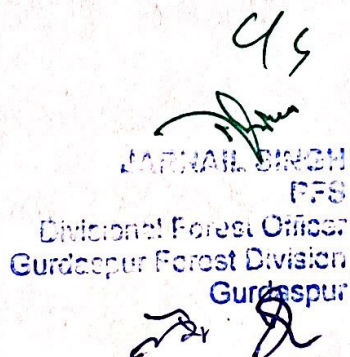 C/S
JARNAIL SINGH
PFS
Divisional Forest Officer
Gurdaspur Forest Division
Gurdaspur